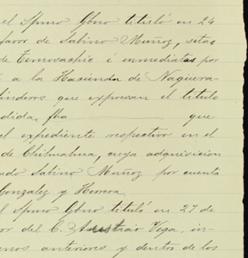 el Spmo Gbno tituló en 24
favor de Sabino Muñoz, sitas
de Ferrocarril e inmediatas por
a la Hacienda de Naguera-
linderos que expresan el título
dida, fha que
el expediente respectivo en el
de Chihuahua, cuya adquisicion
ado Sabino Muñoz por cuenta
Gonzalez y Herrera.
el Spmo Gbno tituló en 27 de
or del C. Vega, in-
enos anteriores y dentro de los